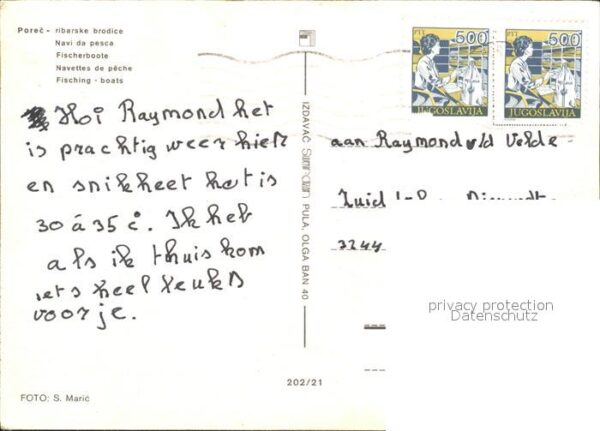 Poreč - ribarske brodice
Navi da pesca
Fischerboote
Navettes de pêche
Fisching - boats
PTT 500
JUGOSLAVIJA
PTT 500
JUGOSLAVIJA
Hoi Raymond het
is prachtig weer hier
en snikheet hat is
30 á 35 c. Ik heb
als ik thuis kom
iets heel leuks
voor je.
IZDAVAČ PULA, OLGA BAN 40
aan Raymond v/d Velde
Zuid
3244
privacy protection
Datenschutz
202/21
FOTO: S. Marić